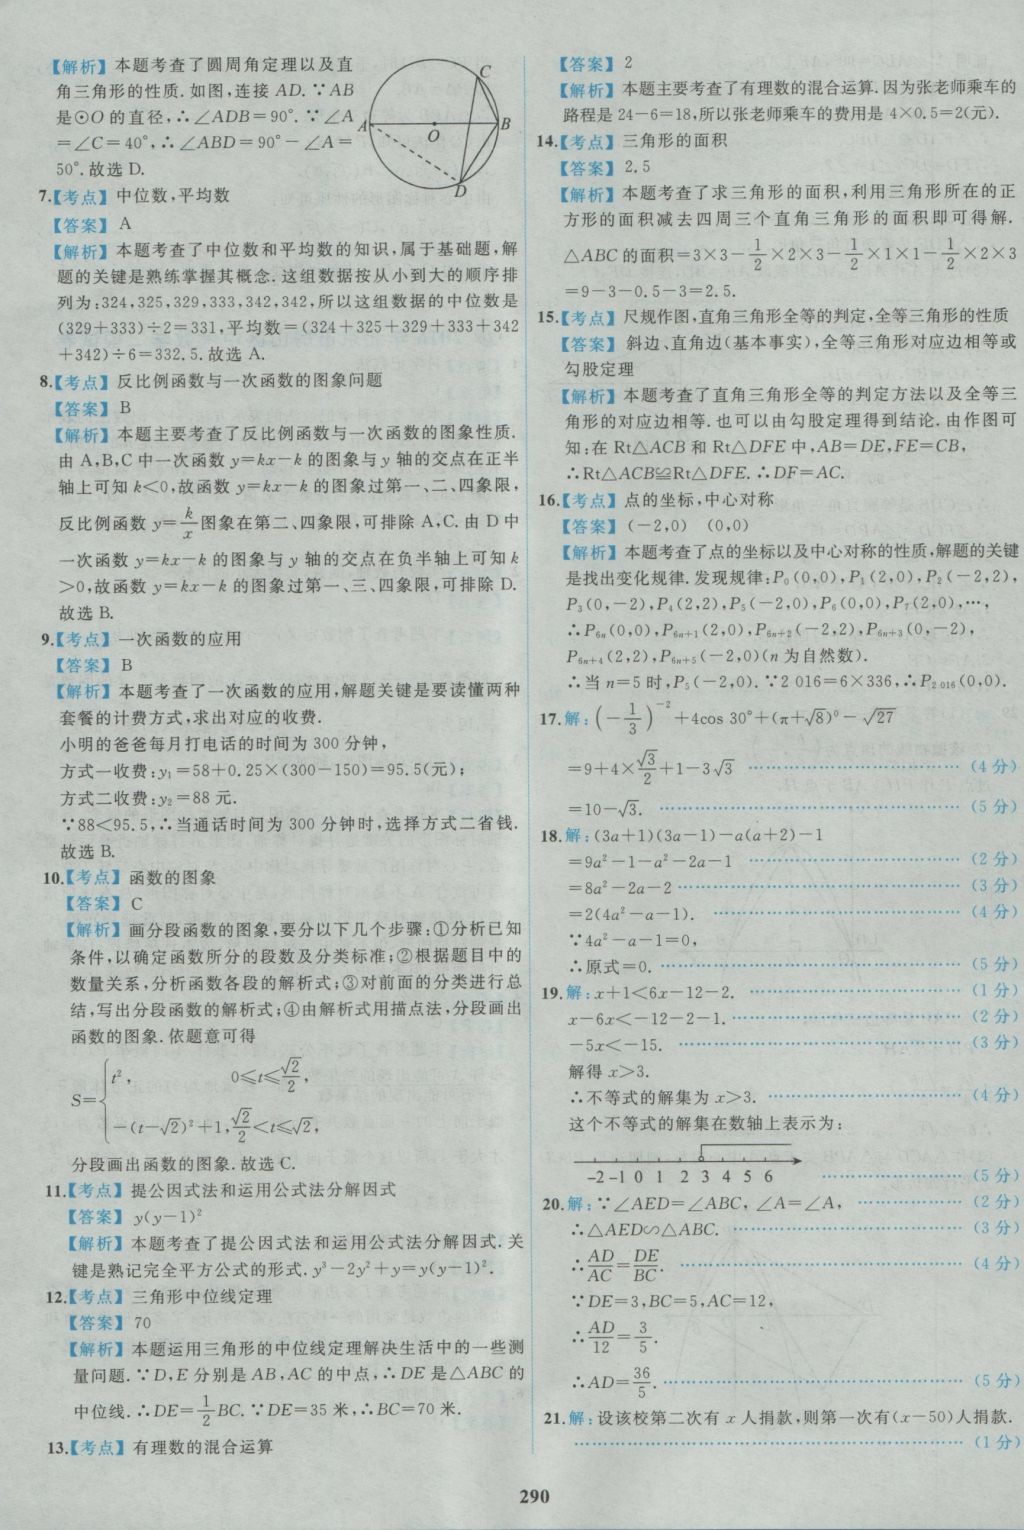 【解析】本题考查了圆周角定理以及直
角三角形的性质.如图,连接 AD.∵AB
是⊙O 的直径,∴∠ADB=90°.∵∠A
=∠C=40°,∴∠ABD=90°-∠A=
50°.故选 D.
C
A
O
B
D
7.【考点】中位数,平均数
【答案】 A
【解析】本题考查了中位数和平均数的知识,属于基础题,解
题的关键是熟练掌握其概念.这组数据按从小到大的顺序排
列为:324,325,329,333,342,342,所以这组数据的中位数是
(329+333)÷2=331,平均数=(324+325+329+333+342
+342)÷6=332.5.故选 A.
8.【考点】反比例函数与一次函数的图象问题
【答案】 B
【解析】本题主要考查了反比例函数与一次函数的图象性质.
由 A,B,C 中一次函数 y=kx-k 的图象与 y 轴的交点在正半
轴上可知 k<0,故函数 y=kx-k 的图象过第一、二、四象限,
反比例函数 y=k/x 图象在第二、四象限,可排除 A,C.由 D 中
一次函数 y=kx-k 的图象与 y 轴的交点在负半轴上可知 k
>0,故函数 y=kx-k 的图象过第一、三、四象限,可排除 D.
故选 B.
9.【考点】一次函数的应用
【答案】 B
【解析】本题考查了一次函数的应用,解题关键是要读懂两种
套餐的计费方式,求出对应的收费.
小明的爸爸每月打电话的时间为 300 分钟,
方式一收费:y₁=58+0.25×(300-150)=95.5(元);
方式二收费:y₂=88 元.
∵88<95.5,∴当通话时间为 300 分钟时,选择方式二省钱.
故选 B.
10.【考点】函数的图象
【答案】 C
【解析】画分段函数的图象,要分以下几个步骤:①分析已知
条件,以确定函数所分的段数及分类标准;②根据题目中的
数量关系,分析函数各段的解析式;③对前面的分类进行总
结,写出分段函数的解析式;④由解析式用描点法,分段画出
函数的图象.依题意可得
S={ t², 0≤t≤√2/2,
-(t-√2)²+1, √2/2<t≤√2,
分段画出函数的图象.故选 C.
11.【考点】提公因式法和运用公式法分解因式
【答案】 y(y-1)²
【解析】本题考查了提公因式法和运用公式法分解因式.关
键是熟记完全平方公式的形式.y³-2y²+y=y(y-1)².
12.【考点】三角形中位线定理
【答案】 70
【解析】本题运用三角形的中位线定理解决生活中的一些测
量问题.∵D,E 分别是 AB,AC 的中点,∴DE 是△ABC 的
中位线.∴DE=1/2 BC.∵DE=35 米,∴BC=70 米.
13.【考点】有理数的混合运算
【答案】 2
【解析】本题主要考查了有理数的混合运算.因为张老师乘车的
路程是 24-6=18,所以张老师乘车的费用是 4×0.5=2(元).
14.【考点】三角形的面积
【答案】 2.5
【解析】本题考查了求三角形的面积,利用三角形所在的正
方形的面积减去四周三个直角三角形的面积即可得解.
△ABC 的面积=3×3-1/2×2×3-1/2×1×1-1/2×2×3
=9-3-0.5-3=2.5.
15.【考点】尺规作图,直角三角形全等的判定,全等三角形的性质
【答案】 斜边、直角边(基本事实),全等三角形对应边相等或
勾股定理
【解析】本题考查了直角三角形全等的判定方法以及全等三
角形的对应边相等.也可以由勾股定理得到结论.由作图可
知:在 Rt△ACB 和 Rt△DFE 中,AB=DE,FE=CB,
∴Rt△ACB≌Rt△DFE.∴DF=AC.
16.【考点】点的坐标,中心对称
【答案】 (-2,0) (0,0)
【解析】本题考查了点的坐标以及中心对称的性质,解题的关键
是找出变化规律.发现规律:P₀(0,0),P₁(2,0),P₂(-2,2),
P₃(0,-2),P₄(2,2),P₅(-2,0),P₆(0,0),P₇(2,0),…,
∴P₆ₙ(0,0),P₆ₙ₊₁(2,0),P₆ₙ₊₂(-2,2),P₆ₙ₊₃(0,-2),
P₆ₙ₊₄(2,2),P₆ₙ₊₅(-2,0)(n 为自然数).
∴当 n=5 时,P₅(-2,0).∵2 016=6×336,∴P₂ ₀₁₆(0,0).
17.解:(-1/3)⁻²+4cos 30°+(π+√8)⁰-√27
=9+4×√3/2+1-3√3 ……(4 分)
=10-√3. ……(5 分)
18.解:(3a+1)(3a-1)-a(a+2)-1
=9a²-1-a²-2a-1 ……(2 分)
=8a²-2a-2 ……(3 分)
=2(4a²-a-1). ……(4 分)
∵4a²-a-1=0,
∴原式=0. ……(5 分)
19.解:x+1<6x-12-2. ……(1 分)
x-6x<-12-2-1. ……(2 分)
-5x<-15. ……(3 分)
解得 x>3.
∴不等式的解集为 x>3. ……(4 分)
这个不等式的解集在数轴上表示为:
-2 -1 0 1 2 3 4 5 6 ……(5 分)
20.解:∵∠AED=∠ABC,∠A=∠A, ……(2 分)
∴△AED∽△ABC. ……(3 分)
∴AD/AC=DE/BC. ……(4 分)
∵DE=3,BC=5,AC=12,
∴AD/12=3/5.
∴AD=36/5. ……(5 分)
21.解:设该校第二次有 x 人捐款,则第一次有(x-50)人捐款.
……(1 分)
290